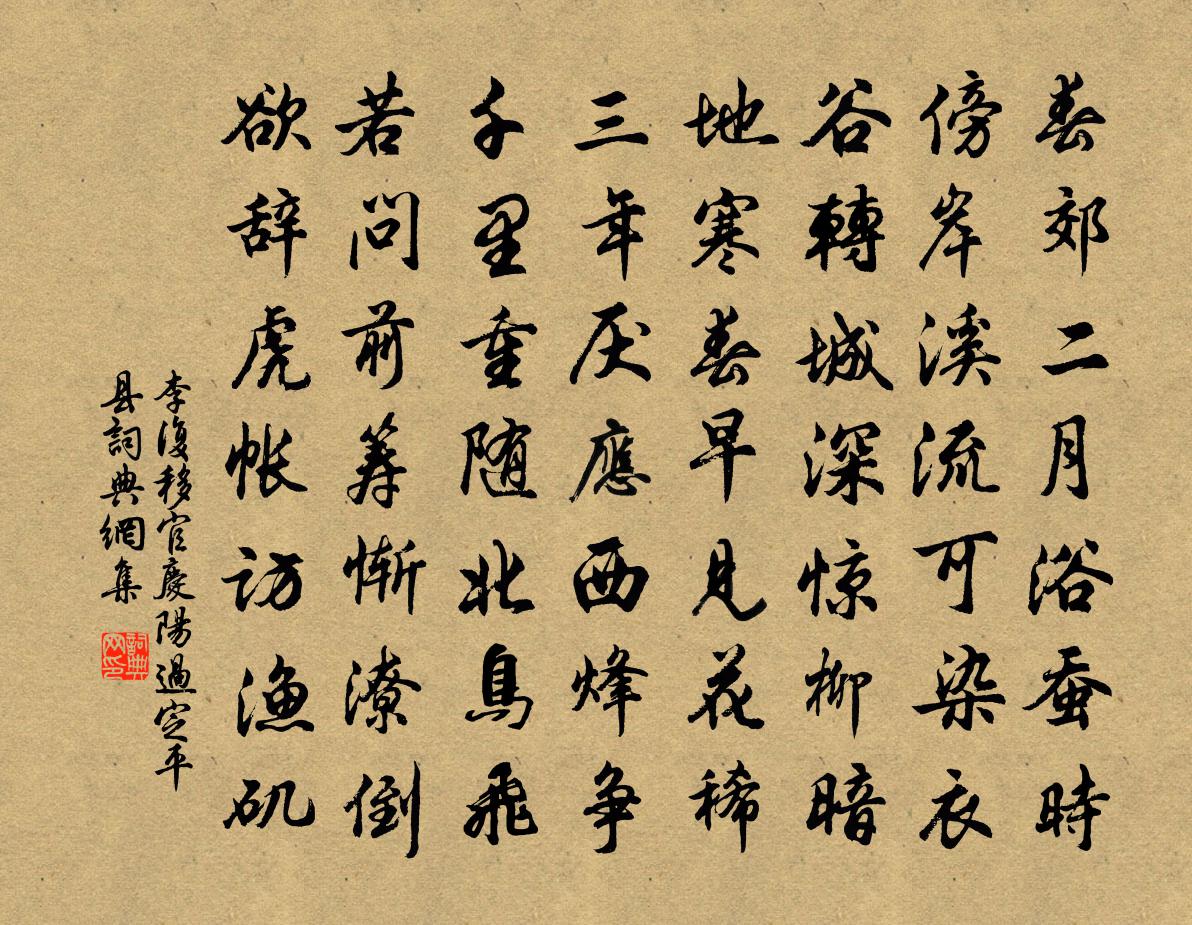 春郊二月浴蚕時
傍岸溪流可染衣
谷轉城深惊柳暗
地寒春早見花稀
三年厌應西烽争
千里重随北鳥飛
若問前筹惭潦倒
欲辞虎帐访渔矶
李復移官慶陽過定平
县詞典網集
詞典
网印